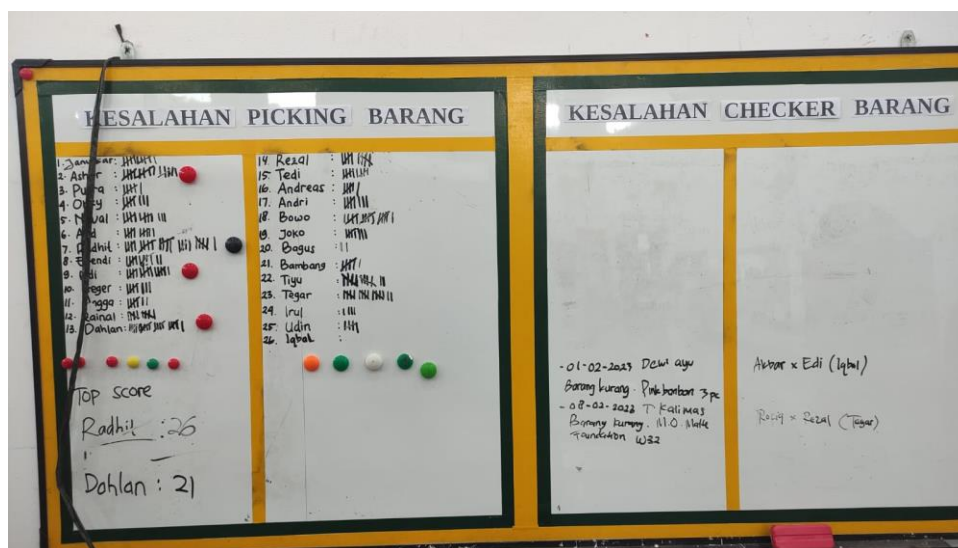 KESALAHAN PICKING BARANG
2. Asher :
3. Putra :
5. Nawal :
7. Radhit :
8. Efendi :
12. Zainal :
13. Dahlan :
14. Rezal :
15. Tedi :
16. Andreas :
17. Andri :
18. Bowo :
19. Joko :
20. Bagus :
21. Bambang :
22. Tiyu :
23. Tegar :
24. Irul :
25. Udin :
26. Iqbal :
Top score
Radhit : 26
Dahlan : 21
KESALAHAN CHECKER BARANG
- 01-02-2023 Dewi ayu
Barang kurang. Pink bonbon 3 pc
- 08-02-2023 T Kalimas
Barang kurang. M.O. Matte
Foundation W32
Akbar x Edi (Iqbal)
x Rezal (Tegar)